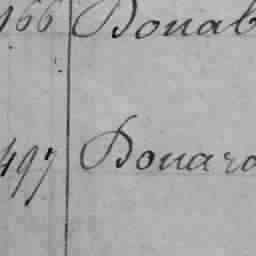 166 Bonab
497 Bonard